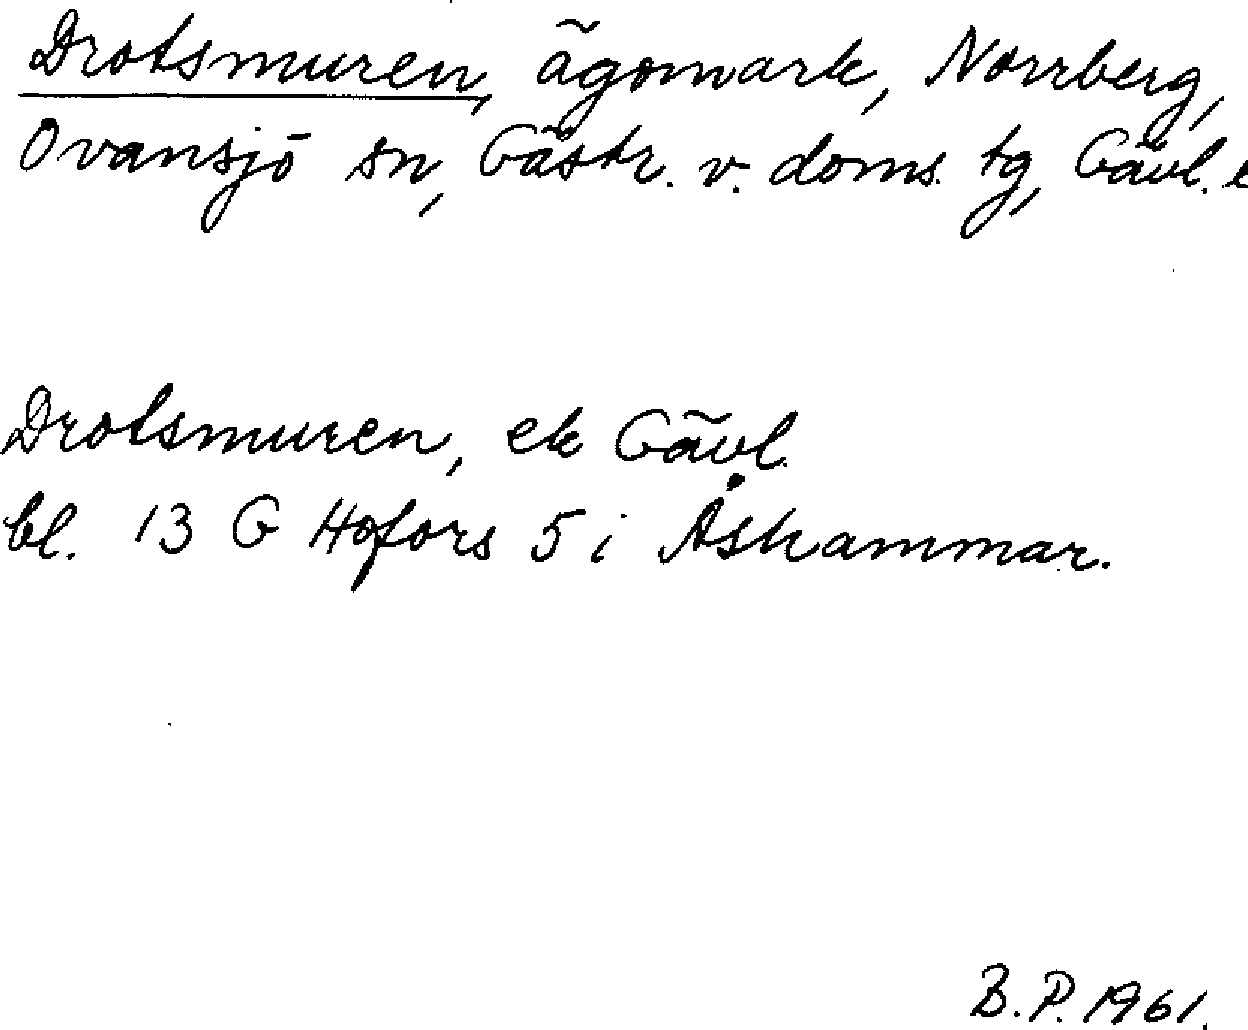 Drotsmuren, ägomark, Norrberg,
Ovansjö sn, Gästr. v. doms. tg, Gävl.
Drotsmuren, ek Gävl.
bl. 13 G Hofors 5 i Åshammar.
B.P. 1961.